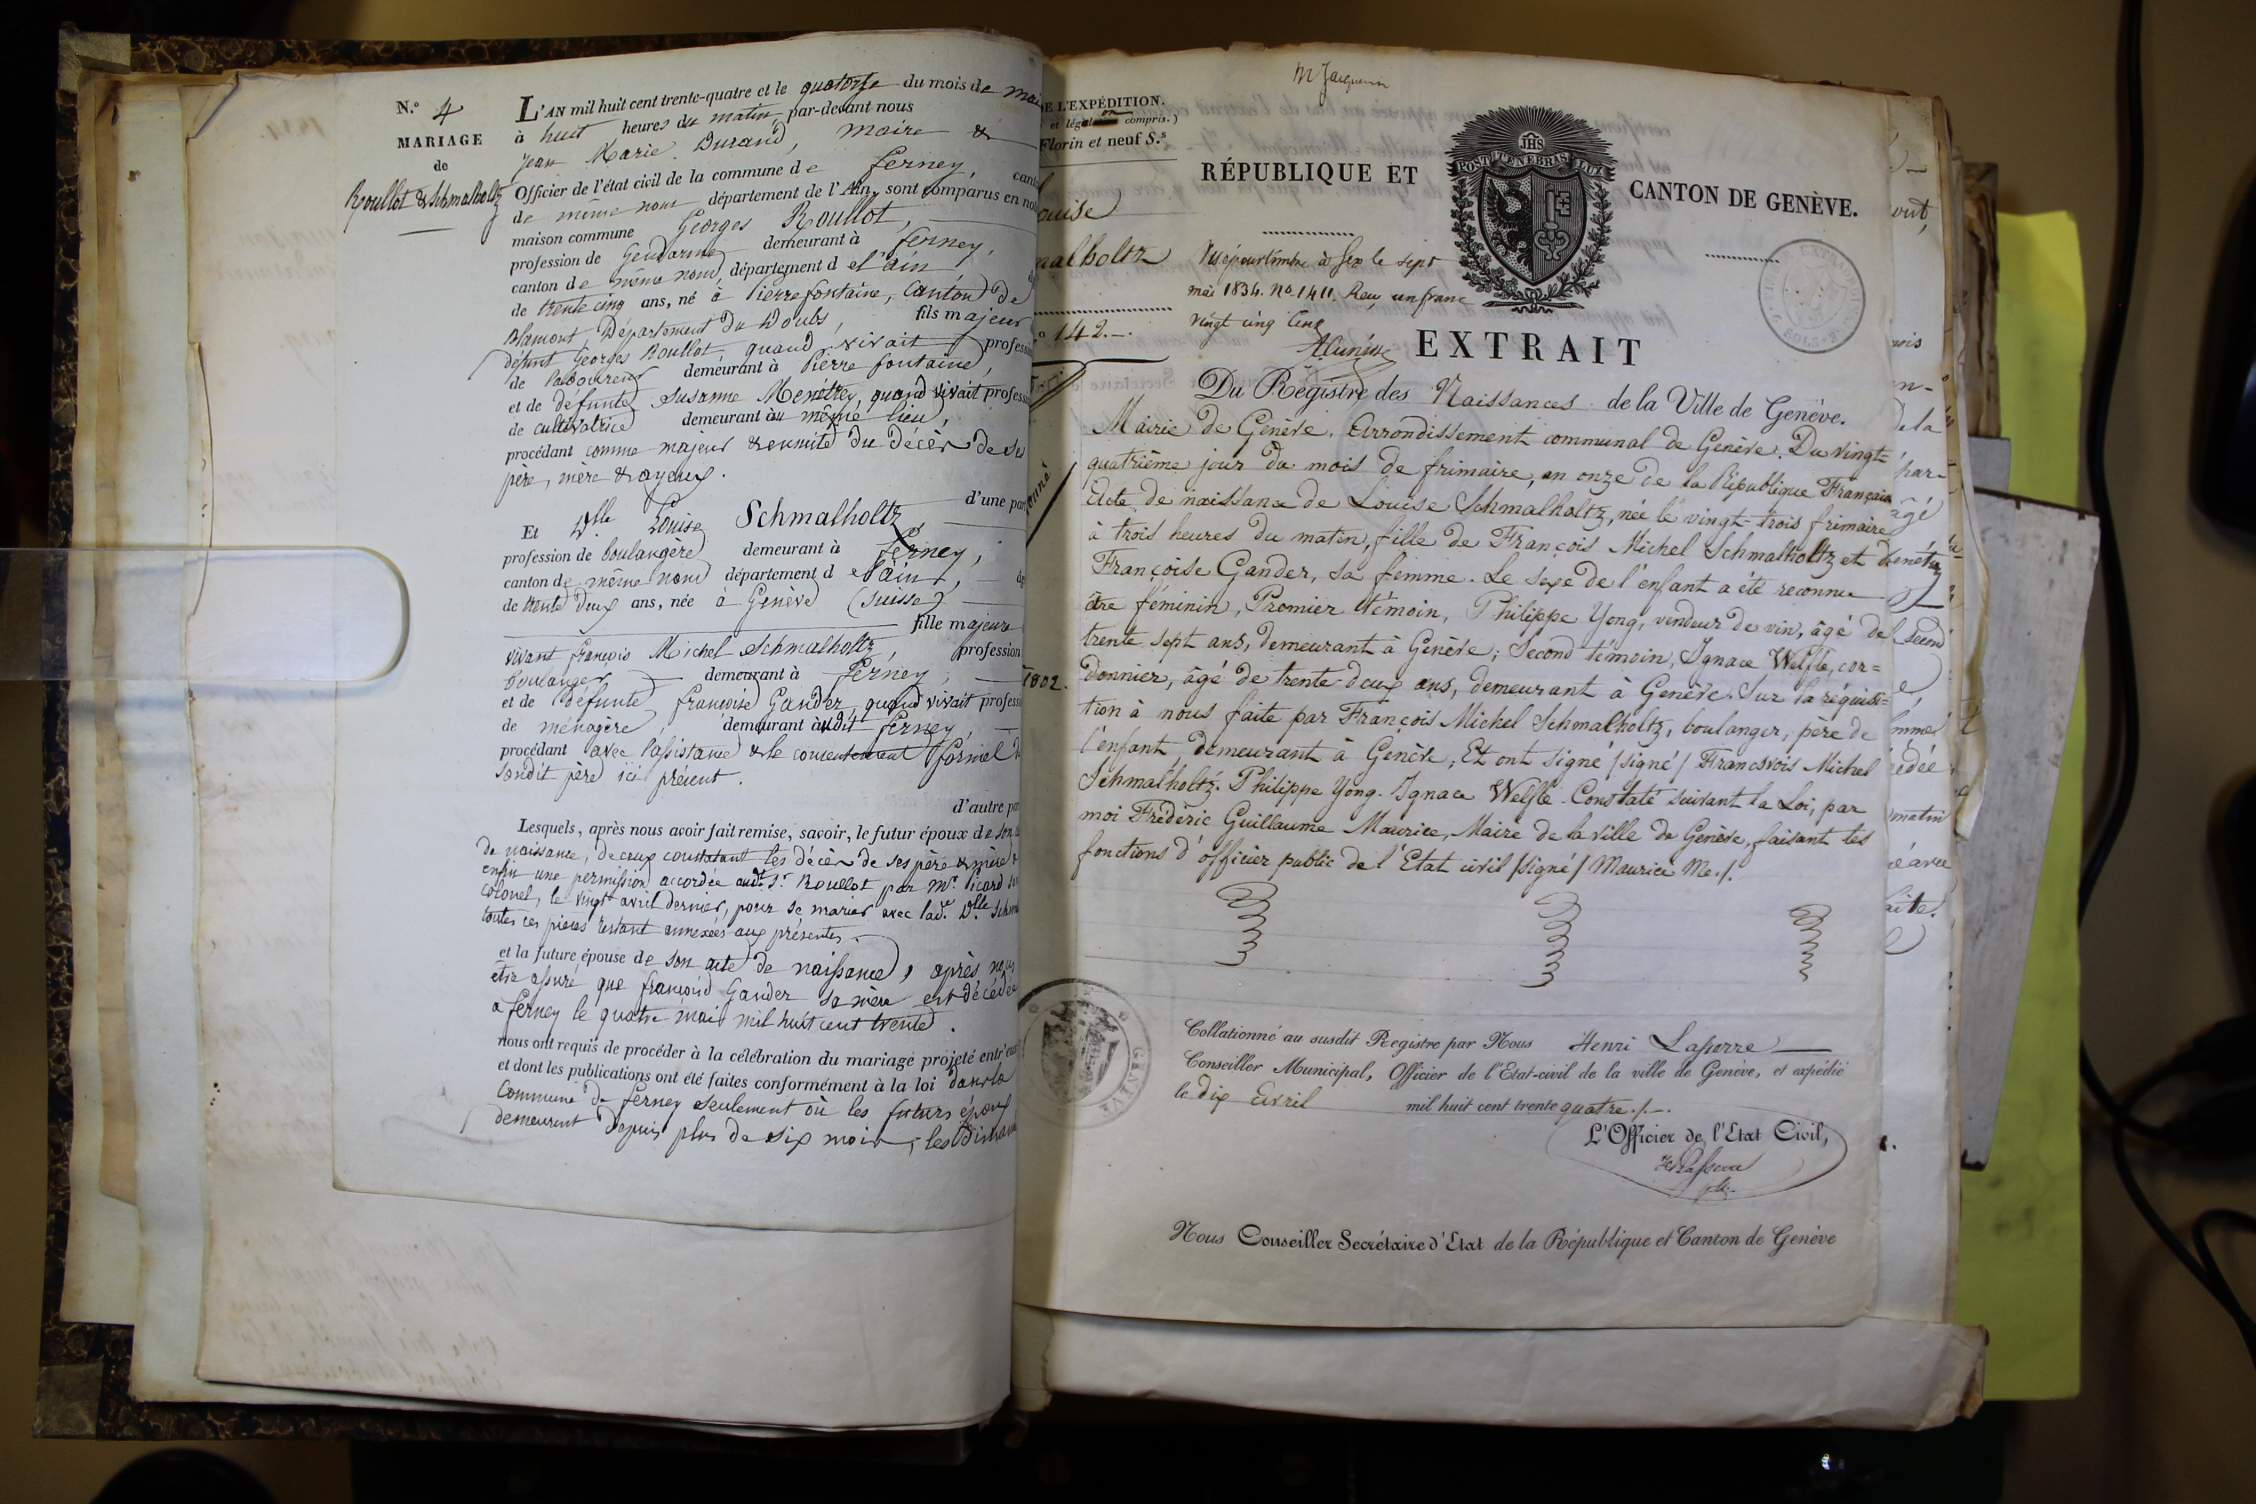 N.° 4
MARIAGE
de
Roullot & Schmalholtz
L'AN mil huit cent trente-quatre et le quatorze du mois de mai
à huit heures du matin par-devant nous
Jean Marie Durand, maire &
Officier de l'état civil de la commune de ferney, canton
de même nom département de l'Ain, sont comparus en notre
maison commune Georges Roullot,
profession de Gendarme demeurant à ferney,
canton de même nom, département d el'ain,
de trente cinq ans, né à Pierrefontaine, Canton de
Blamont Département du Doubs, fils majeur
défunt Georges Roullot quand vivait profession
de laboureur demeurant à Pierre fontaine,
et de défunte Susanne Menétrey, quand vivait profession
de cultivatrice demeurant au même lieu,
procédant comme majeur & ensuite du décès de ses
père, mère & ayeux.
d'une part
Et Dlle Louise Schmalholtz
profession de boulangère demeurant à ferney,
canton de même nom département d el'ain,
de trente deux ans, née à Genève (Suisse)
fille majeure
vivant françois Michel Schmalholtz, profession
boulanger demeurant à ferney,
et de défunte françoise Gander quand vivait profession
de ménagère, demeurant àudit ferney,
procédant avec l'assistance & le consentement formel de
sondit père ici présent.
d'autre part
Lesquels, après nous avoir fait remise, savoir, le futur époux de son
de naissance, de ceux constatant les décès de ses père & mère &
enfin une permission accordée audt. Sr. Roullot par Mr. Picard
colonel, le vingt avril dernier, pour se marier avec lade. Dlle Schm
toutes ces pièces restant annexées aux présentes.
et la future épouse de son acte de naissance, après nous
être assuré que françoise Gander sa mère est décédée
a ferney le quatre mai mil huit cent trente.
nous ont requis de procéder à la célébration du mariage projeté entr'eux
et dont les publications ont été faites conformément à la loi dans la
Commune de ferney seulement où les futurs époux
demeurent depuis plus de six mois; les dimanches
DE L'EXPÉDITION.
et légalon compris.)
Florin et neuf S.s
ouise
malholtz
° 142.
1802.
M Jacquemin
RÉPUBLIQUE ET CANTON DE GENÈVE.
POST TENEBRAS LUX
Visé pour timbre à Gex le sept
mai 1834. No. 1411. Reçu un franc
vingt cinq cens
EXTRAIT
Du Régistre des Naissances de la Ville de Genève.
Mairie de Genève. Arrondissement communal de Genève. Du vingt=
quatrième jour du mois de frimaire, an onze de la République Française
Acte de naissance de Louise Schmalholtz, née le vingt-trois frimaire
à trois heures du matin, fille de François Michel Schmalholtz et de
Françoise Gander, sa femme. Le sexe de l'enfant a été reconnu
être féminin, Premier témoin, Philippe Yong, vendeur de vin, âgé de
trente sept ans, demeurant à Genève; Second témoin, Ignace Welfle, cor=
donnier, âgé de trente-deux ans, demeurant à Genève. Sur la réquisi=
tion à nous faite par François Michel Schmalholtz, boulanger, père de
l'enfant, demeurant à Genève, Et ont signé /signé/ Francsvois Michel
Schmalholtz. Philippe Yong. Ignace Welfle. Constaté suivant la Loi, par
moi Frédéric Guillaume Maurice, Maire de la ville de Genève, faisant les
fonctions d'officier public de l'Etat civil /signé/ Maurice Me./.
GENÈVE
Collationné au susdit Registre par Nous Henri Lasserre
Conseiller Municipal, Officier de l'Etat-civil de la ville de Genève, et expédié
le dix Avril mil huit cent trente quatre./.
L'Officier de l'Etat Civil,
Nous Conseiller Secrétaire d'Etat de la République et Canton de Genève